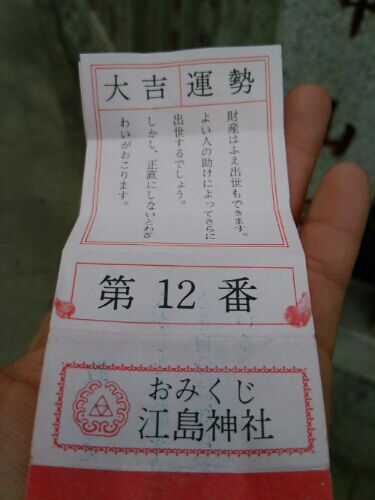 運勢
大吉
財産はふえ出世もできます。
よい人の助けによってさらに
出世するでしょう。
しかし、正直にしないとわざ
わいがおこります。
第12番
おみくじ
江島神社